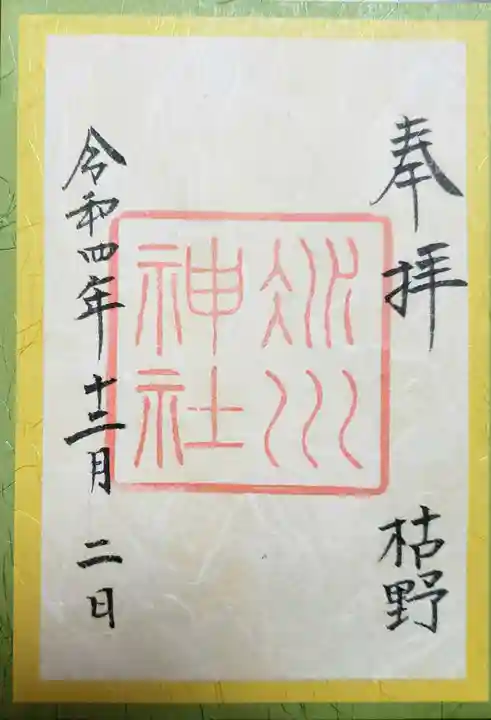 奉拝 枯野
冰川
神社
令和四年 十二月 二日